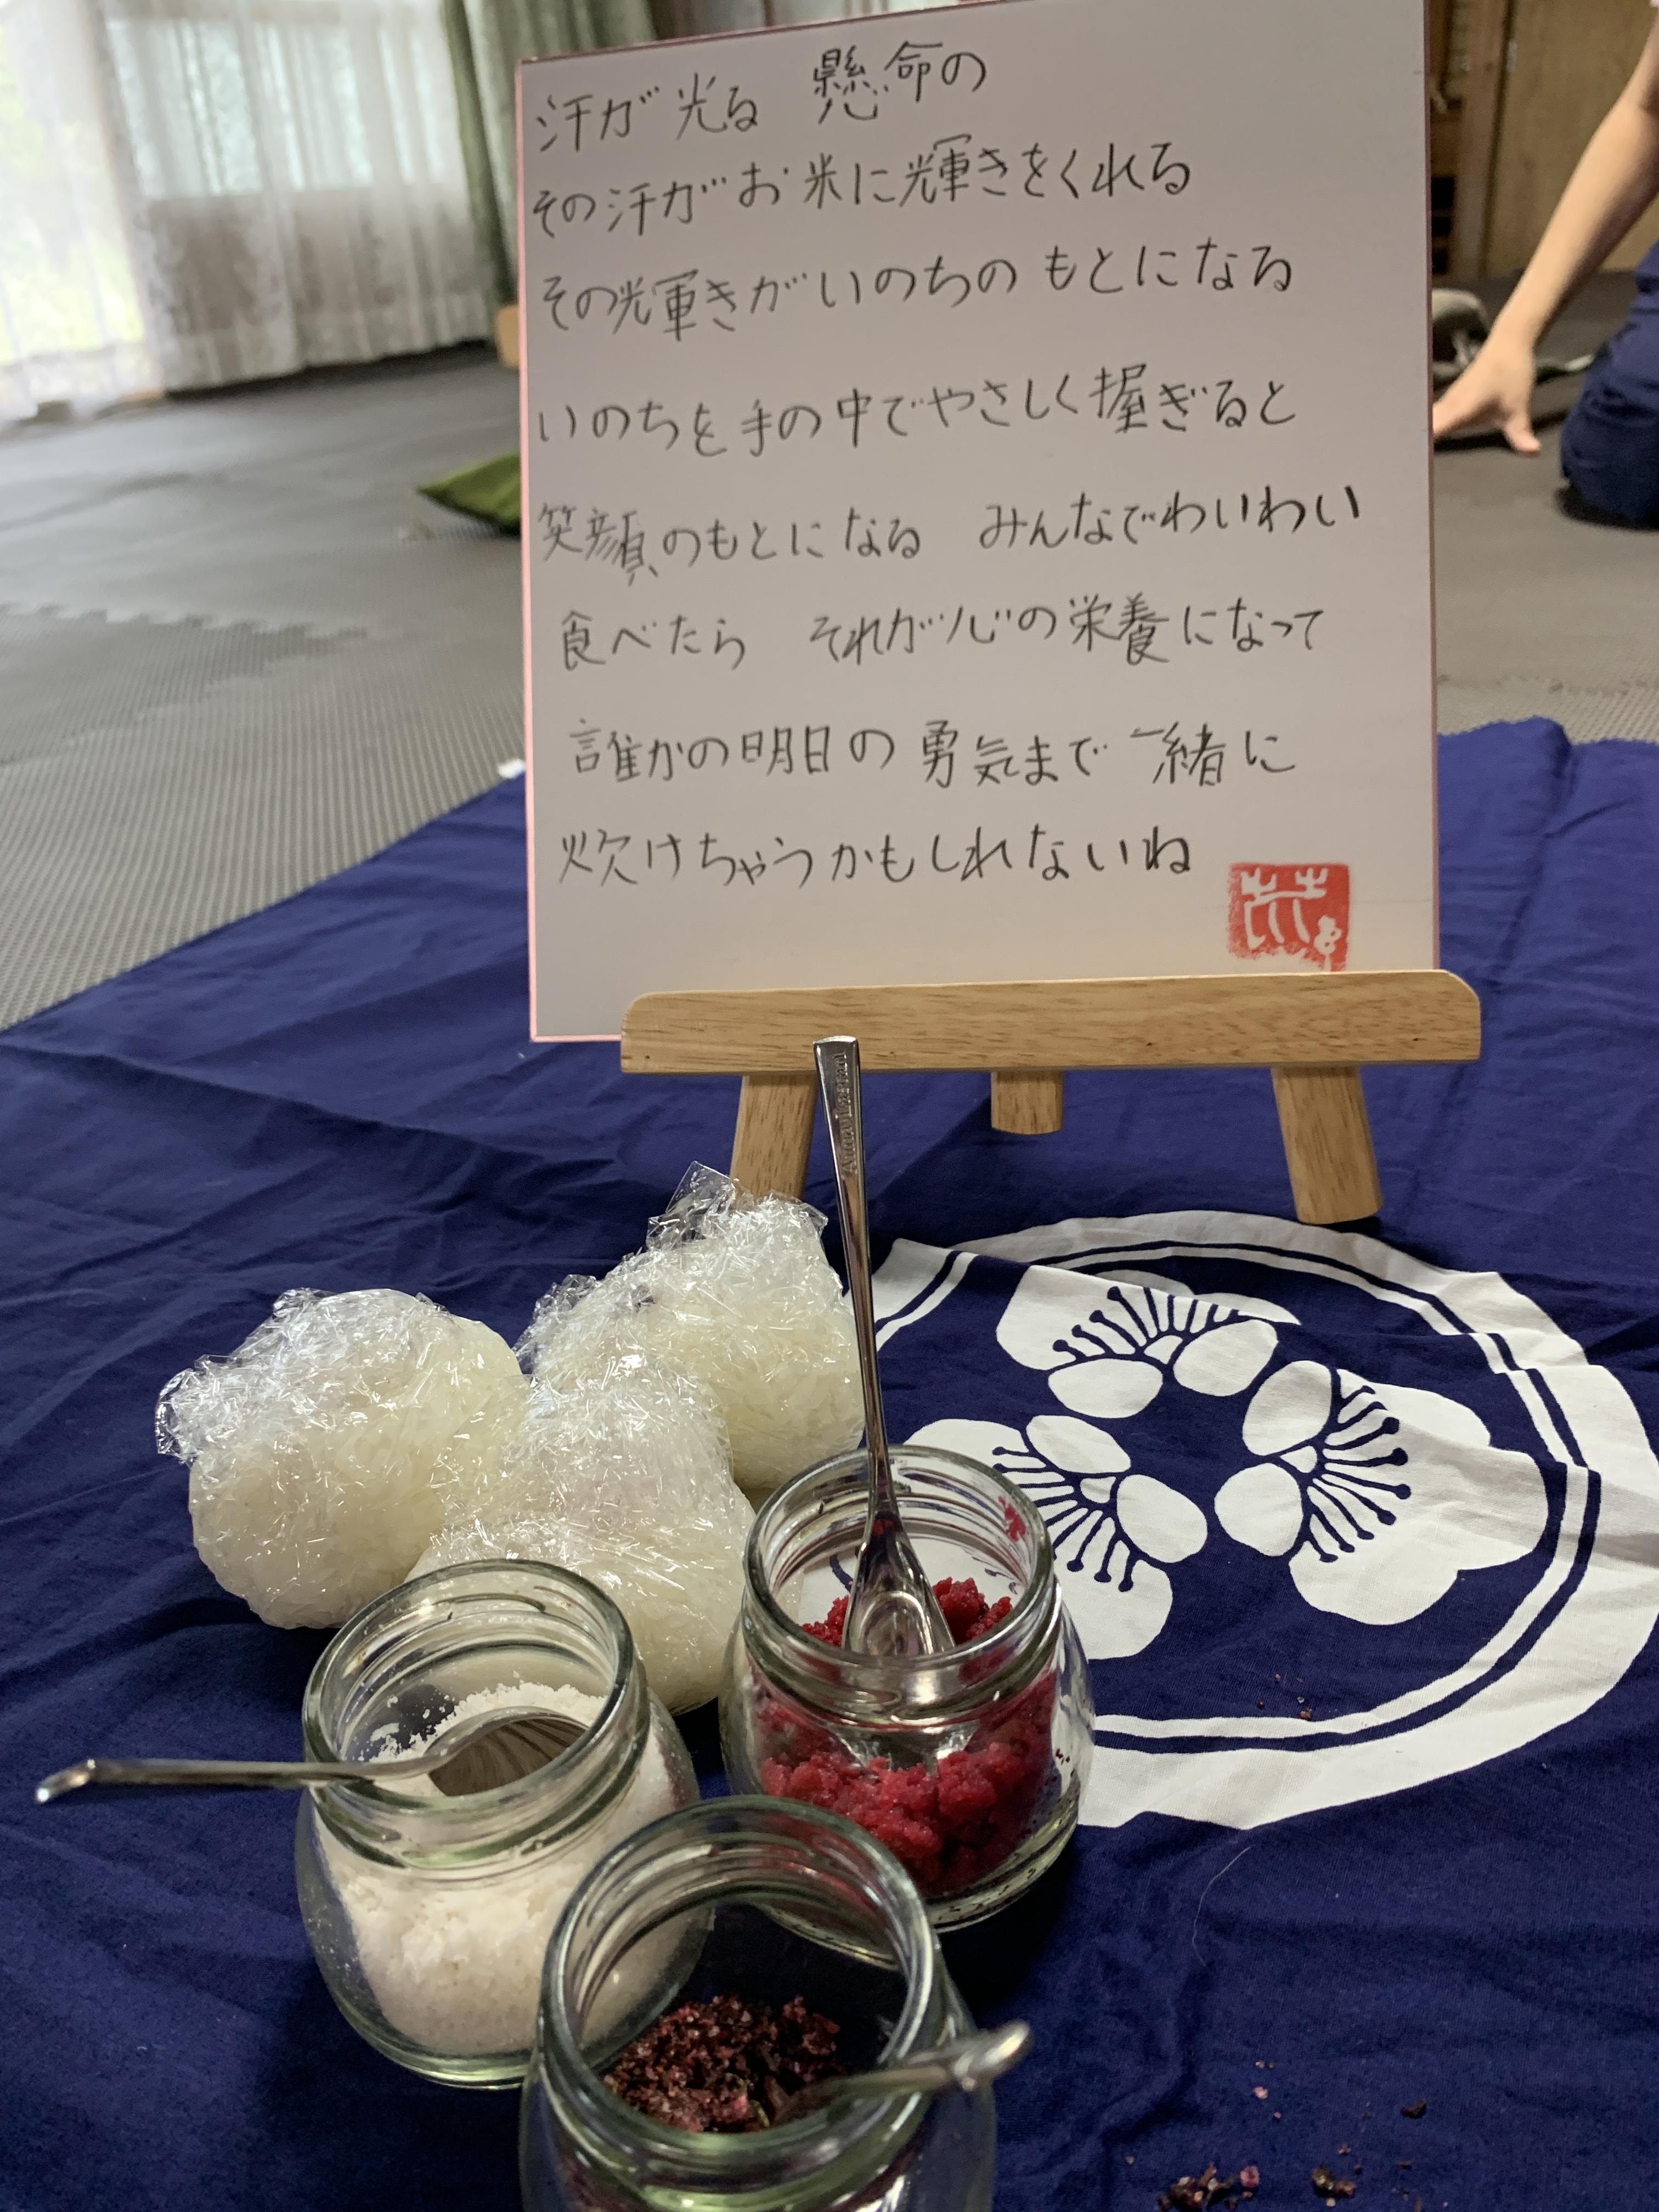 汗が光る 懸命の
その汗がお米に輝きをくれる
その輝きがいのちのもとになる
いのちを手の中でやさしく握ぎると
笑顔のもとになる みんなでわいわい
食べたら それが心の栄養になって
誰かの明日の勇気まで一緒に
炊けちゃうかもしれないね